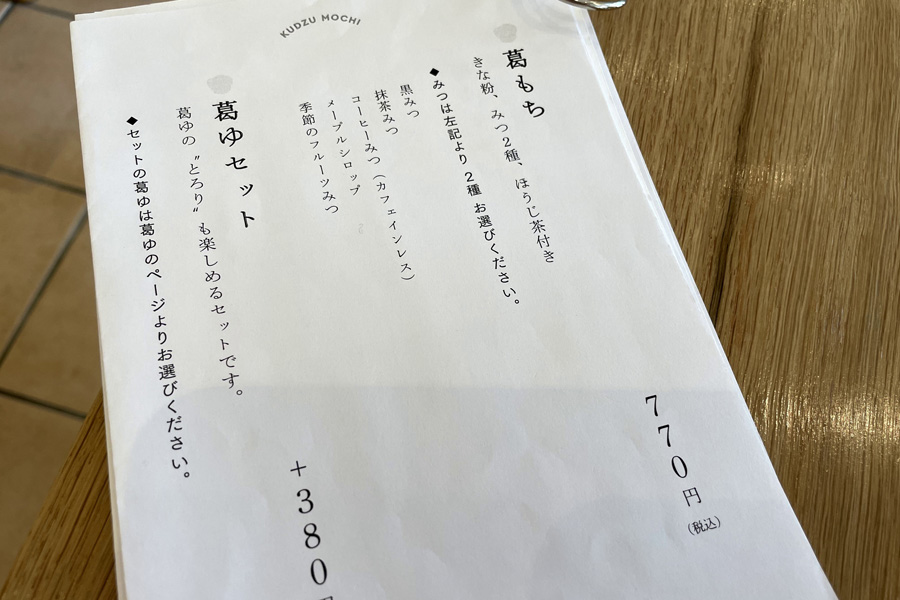 KUDZU MOCHI
葛もち
きな粉、みつ2種、ほうじ茶付き
770円
(税込)
◆みつは左記より2種お選びください。
黒みつ
抹茶みつ
コーヒーみつ(カフェインレス)
メープルシロップ
季節のフルーツみつ
葛ゆセット
+380円
葛ゆの〝とろり〟も楽しめるセットです。
◆セットの葛ゆは葛ゆのページよりお選びください。